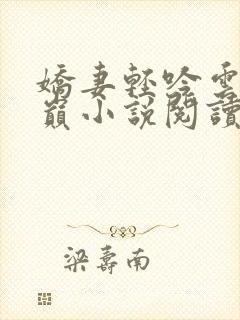 嬌妻輕吟雲
巔小說閱讀
梁壽南